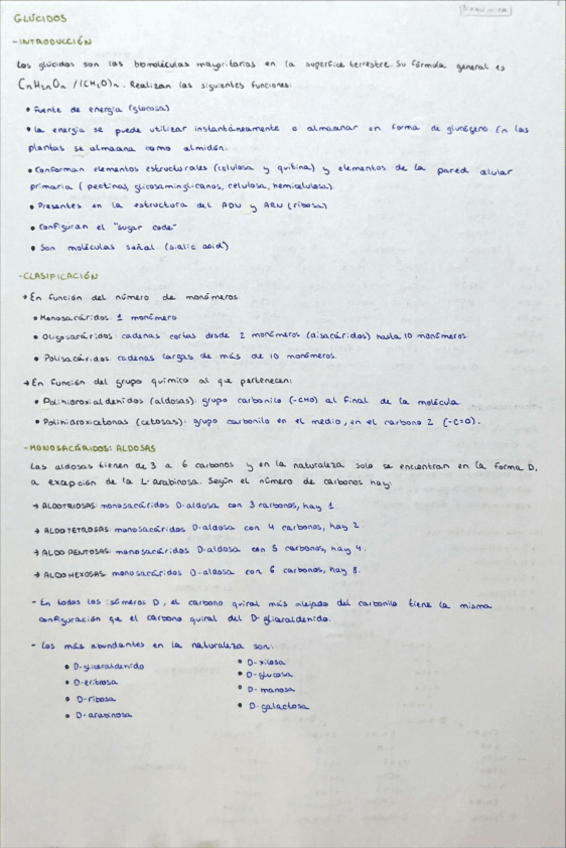 Bioquímica
GLÚCIDOS
-INTRODUCCIÓN
Los glúcidos son las biomoléculas mayoritarias en la superficie terrestre. Su fórmula general es
CnH2nOn / (CH2O)n. Realizan las siguientes funciones:
• Fuente de energía (glucosa)
• La energía se puede utilizar instantáneamente o almacenar en forma de glucógeno. En las
plantas se almacena como almidón.
• Conforman elementos estructurales (celulosa y quitina) y elementos de la pared celular
primaria (pectinas, glicosaminglicanos, celulosa, hemicelulosa).
• Presentes en la estructura del ADN y ARN (ribosa)
• Configuran el "sugar code"
• Son moléculas señal (sialic acid)
-CLASIFICACIÓN
→ En función del número de monómeros:
• Monosacáridos: 1 monómero
• Oligosacáridos: cadenas cortas desde 2 monómeros (disacáridos) hasta 10 monómeros
• Polisacáridos: cadenas largas de más de 10 monómeros.
→ En función del grupo químico al que pertenecen:
• Polihidroxialdehídos (aldosas): grupo carbonilo (-CHO) al final de la molécula
• Polihidroxicetonas (cetosas): grupo carbonilo en el medio, en el carbono 2 (-C=O).
-MONOSACÁRIDOS: ALDOSAS
Las aldosas tienen de 3 a 6 carbonos y en la naturaleza solo se encuentran en la forma D,
a excepción de la L-arabinosa. Según el número de carbonos hay:
→ ALDOTRIOSAS: monosacáridos D-aldosa con 3 carbonos, hay 1.
→ ALDOTETROSAS: monosacáridos D-aldosa con 4 carbonos, hay 2.
→ ALDOPENTOSAS: monosacáridos D-aldosa con 5 carbonos, hay 4.
→ ALDOHEXOSAS: monosacáridos D-aldosa con 6 carbonos, hay 8.
- En todos los isómeros D, el carbono quiral más alejado del carbonilo tiene la misma
configuración que el carbono quiral del D-gliceraldehído.
- Los más abundantes en la naturaleza son:
• D-gliceraldehído
• D-eritrosa
• D-ribosa
• D-arabinosa
• D-xilosa
• D-glucosa
• D-manosa
• D-galactosa